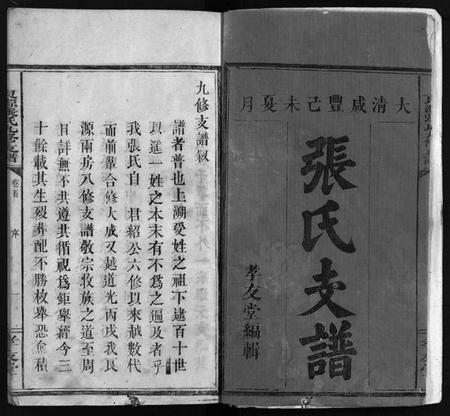 大清咸豐己未夏月
張氏支譜
孝友堂編輯
九修支譜敘
譜者普也上溯受姓之祖下逮百十世
以遑一姓之本末有不爲之遍及者乎
我張氏自 君紹公六修以來越數代
而前輩合修大成又越道光丙戌我良
源兩房八修支譜敬宗收族之道至周
且詳無不共遵其循視爲鉅舉經今三
十餘載其生歿葬配不勝枚舉恐愈積
良源張氏九修支譜
卷首
序
孝友堂